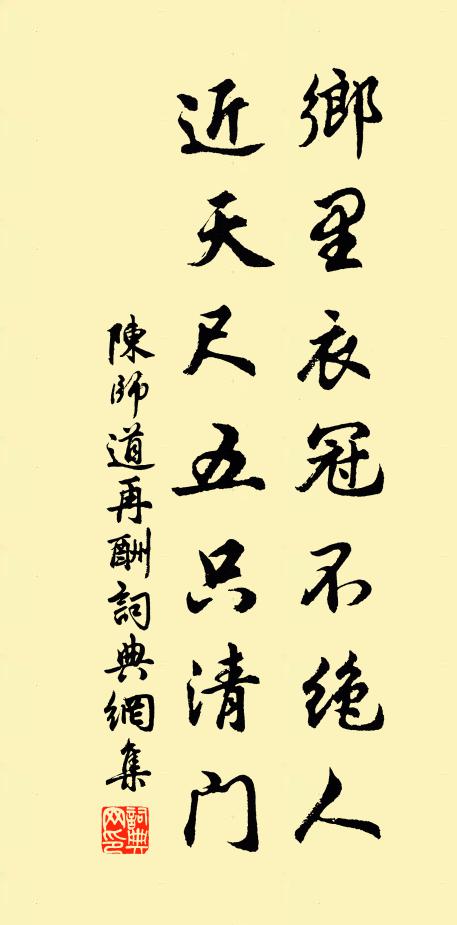 鄉里衣冠不絶人
近天尺五只清門
陳師道再酬詞典網集
詞典網印